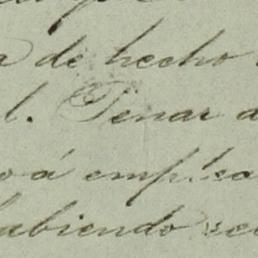 a de hecho
l. Tenar a
o á emplea
abiendo se